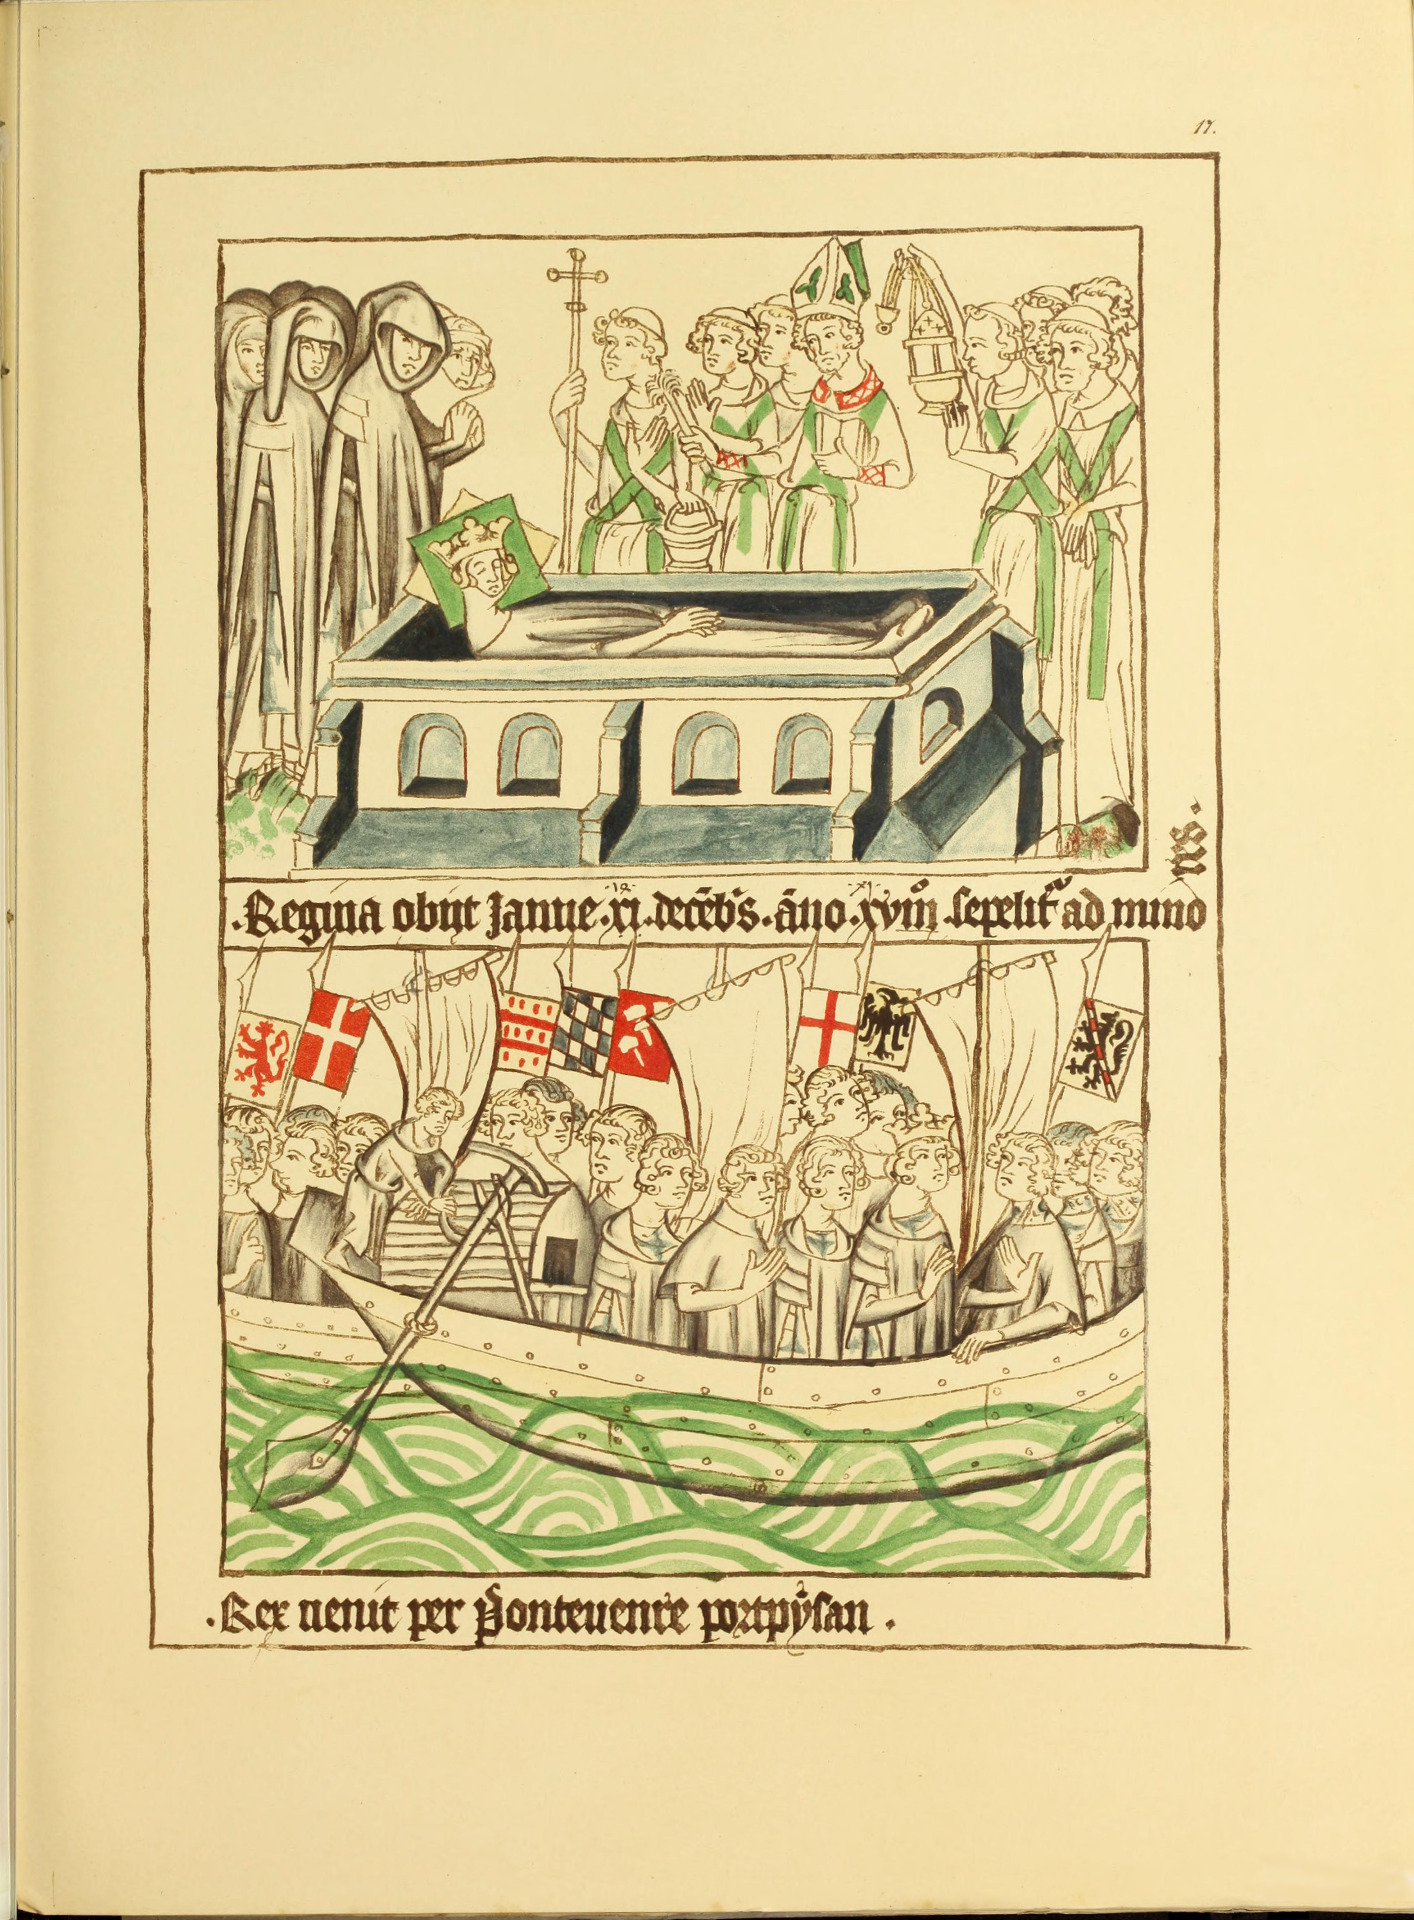 17.
.Regina obiit Janue .xi. decēb's. āno .xviiiº sepelit' ad mino
res.
.Rex uenit per Ponteuenre portpysan.